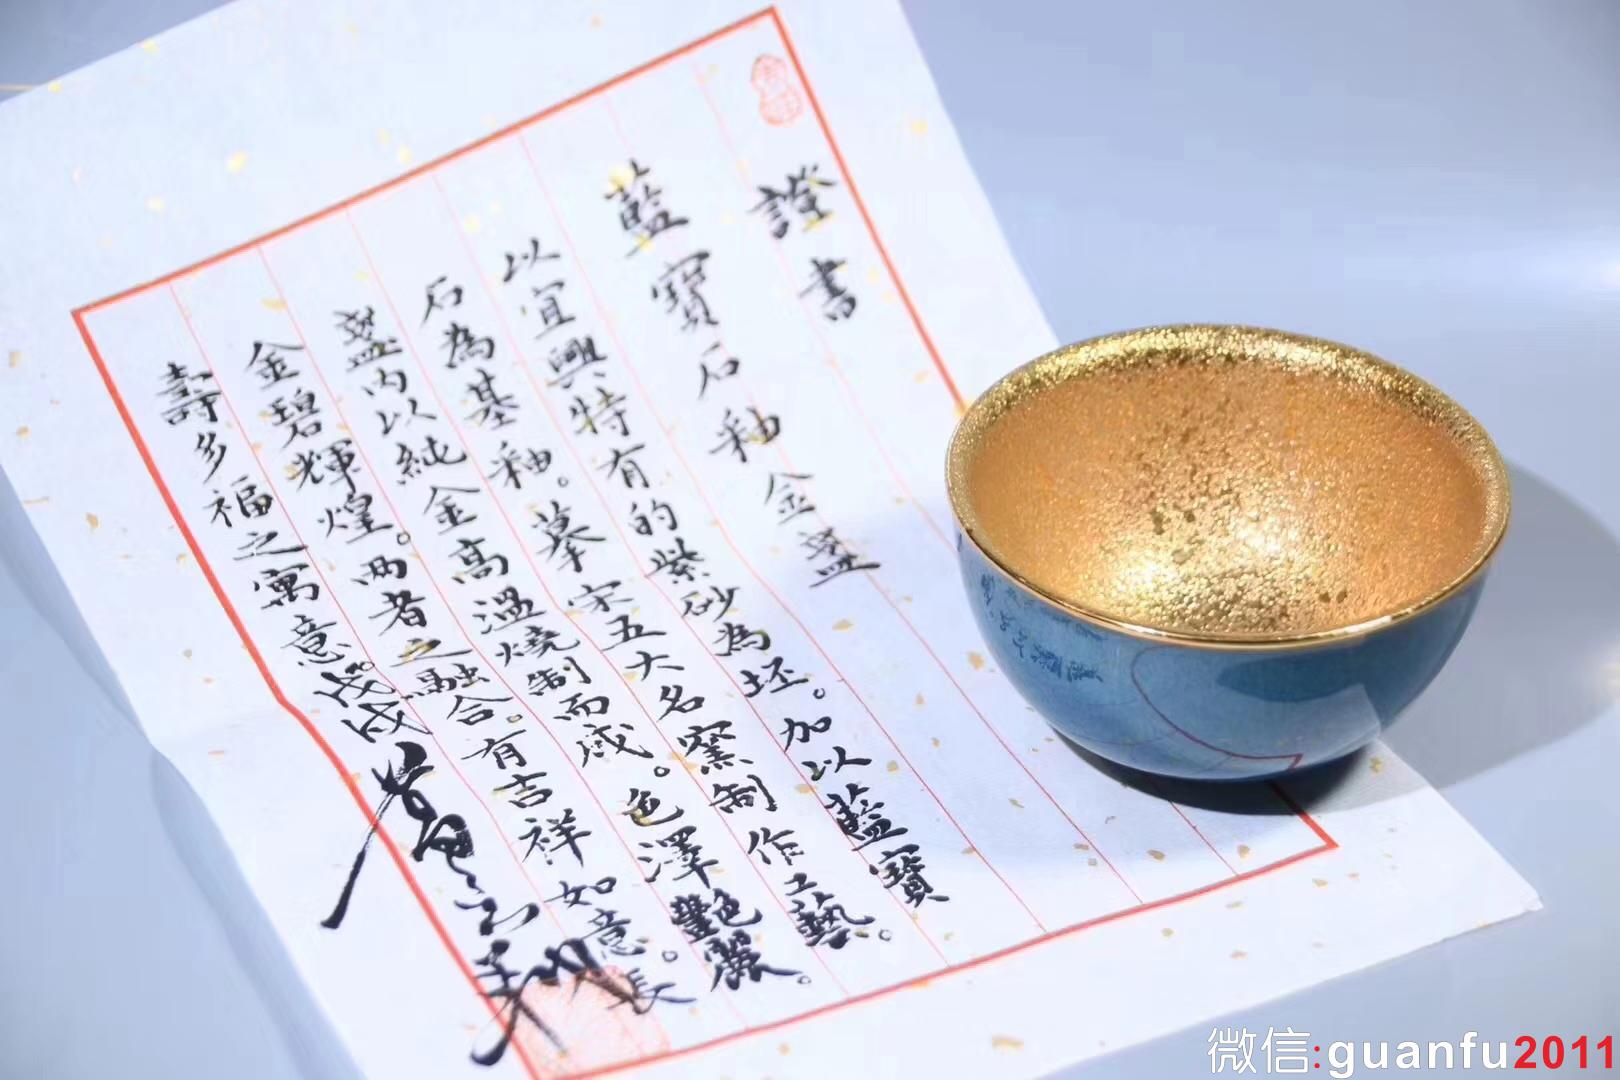 證書
藍寶石釉金盌
以宜興特有的紫砂為坯。加以藍寶
石為基釉。摹宋五大名窯制作工藝。
盌内以純金高溫燒制而成。色澤艷麗。
金碧輝煌。两者之融合。有吉祥如意。長
壽多福之寓意。戊戌
微信:guanfu2011